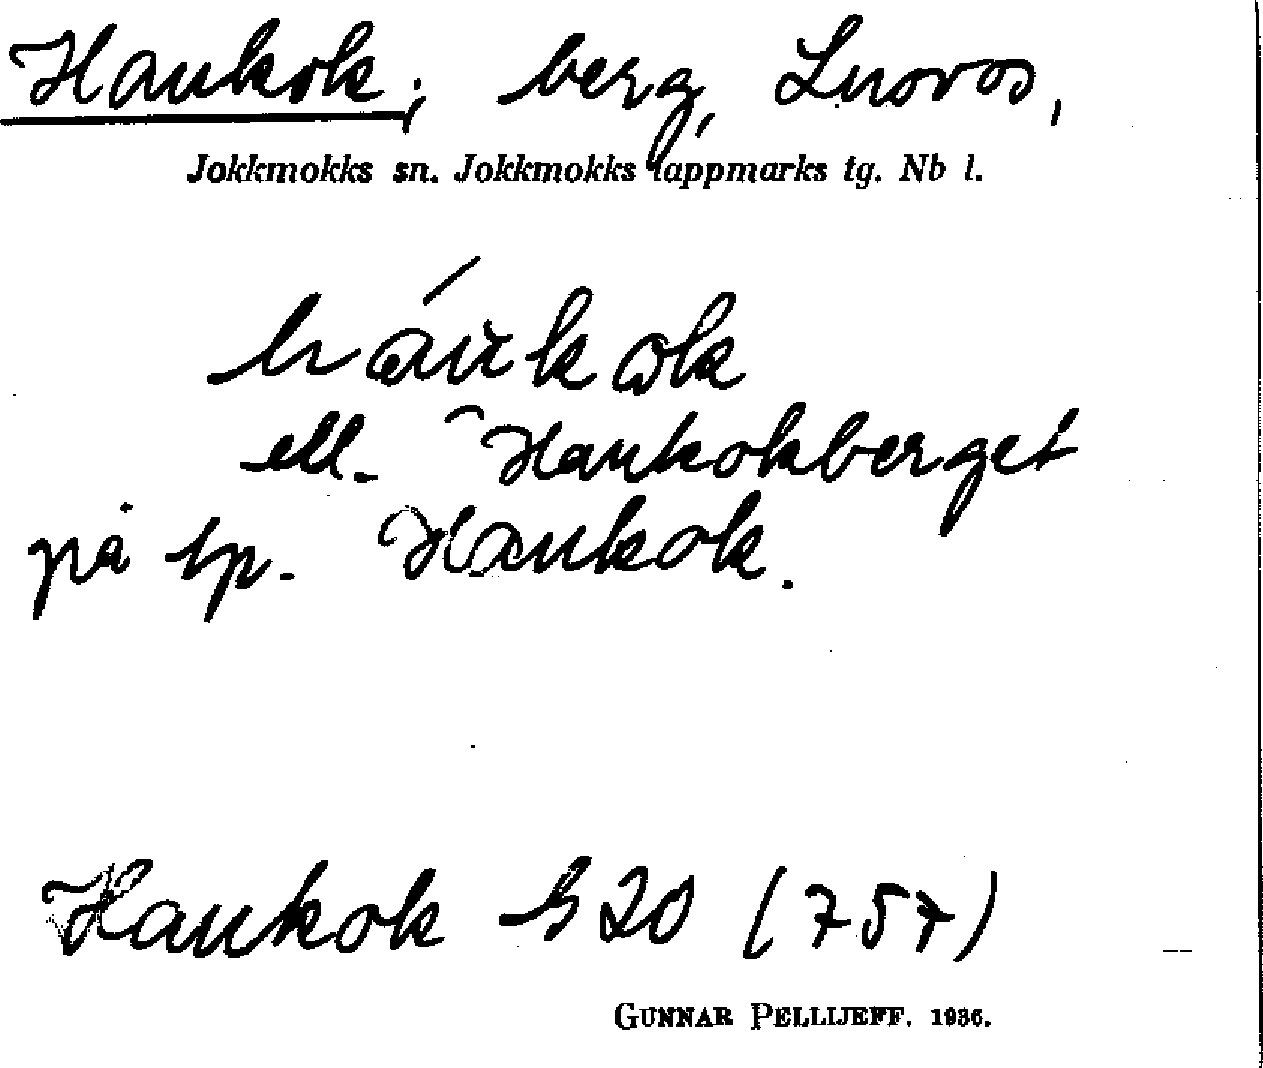 Haukok, berg, Luovos,
Jokkmokks sn. Jokkmokks lappmarks tg. Nb l.
háukok
ell. Haukokberget
på lp. Haukok.
Haukok b 20 (757)
GUNNAR PELLIJEFF. 1936.